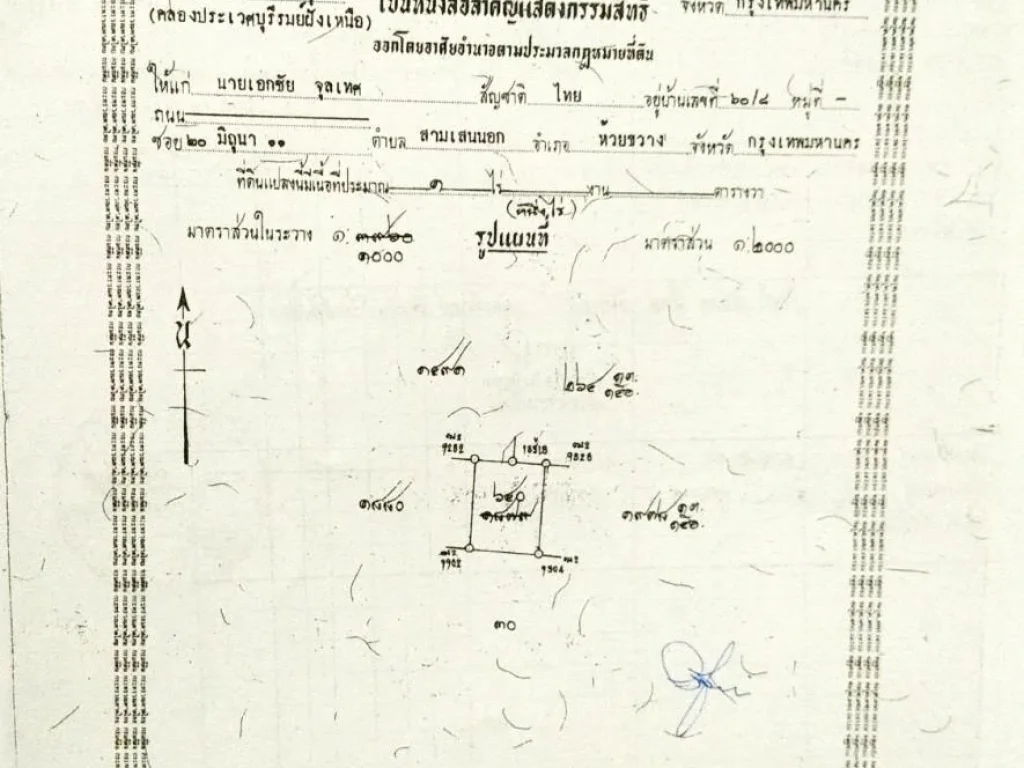 เป็นหนังสือสำคัญแสดงกรรมสิทธิ์ จังหวัด กรุงเทพมหานคร
(คลองประเวศบุรีรมย์ฝั่งเหนือ)
ออกโดยอาศัยอำนาจตามประมวลกฎหมายที่ดิน
ให้แก่ นายเอกชัย จุลเทศ สัญชาติ ไทย อยู่บ้านเลขที่ ๖๐/๘ หมู่ที่ -
ถนน
ซอย ๒๐ มิถุนา ๑๑ ตำบล สามเสนนอก อำเภอ ห้วยขวาง จังหวัด กรุงเทพมหานคร
ที่ดินแปลงนี้มีเนื้อที่ประมาณ ๑ ไร่ งาน ตารางวา
(หนึ่งไร่)
มาตราส่วนในระวาง ๑: ๑๐๐๐ รูปแผนที่ มาตราส่วน ๑:๒๐๐๐
น
๑๔๙๑
๒๖๔
๖๔๐
๑๘๘๐
๓๐